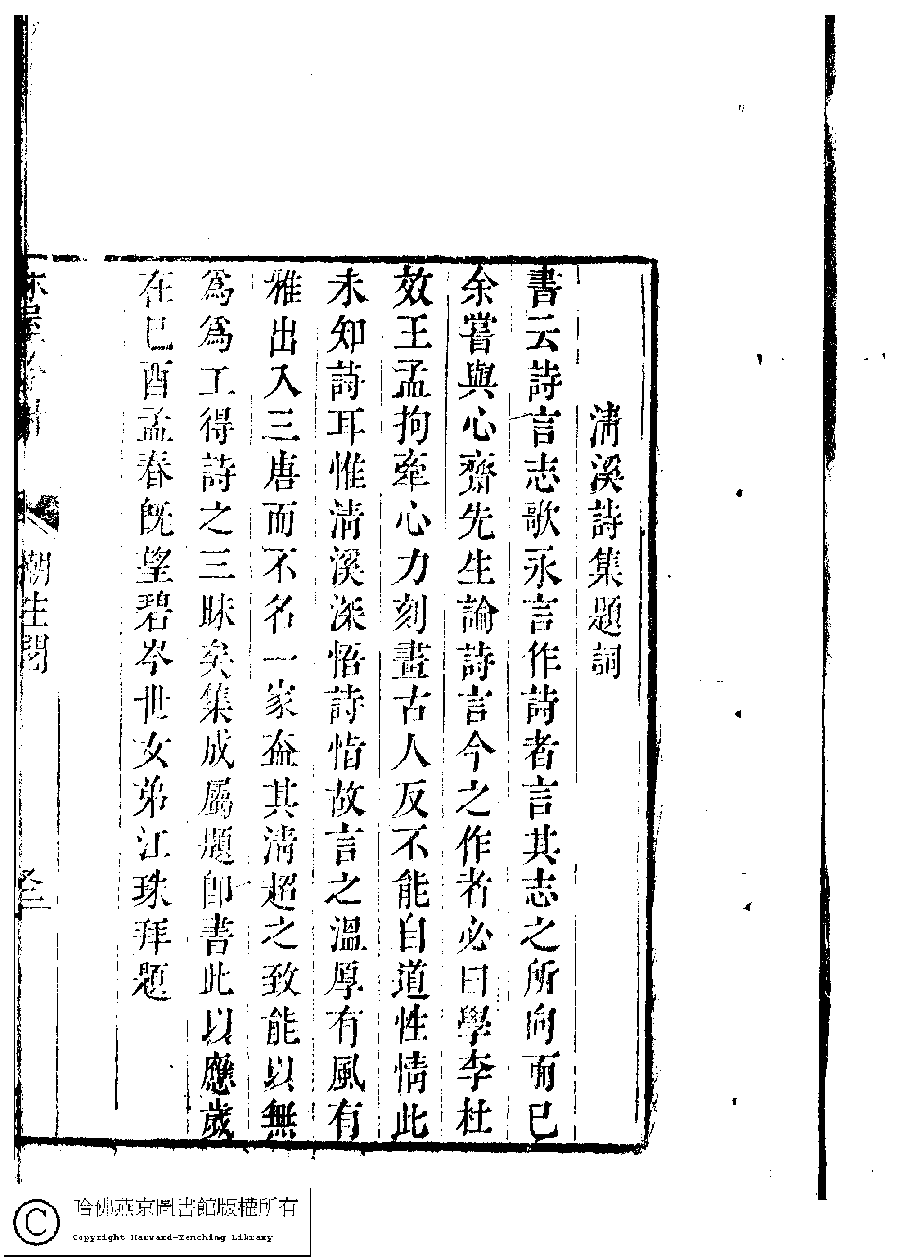 清溪詩集題詞
書云詩言志歌永言作詩者言其志之所向而已
余嘗與心齋先生論詩言今之作者必曰學李杜
效王孟拘牽心力刻畫古人反不能自道性情此
未知詩耳惟清溪深悟詩恉故言之溫厚有風有
雅出入三唐而不名一家蓋其清超之致能以無
爲爲工得詩之三昧矣集成屬題卽書此以應歲
在巳酉孟春旣望碧岑世女弟江珠拜題
潮生閣
哈佛燕京圖書館版權所有
Copyright Harvard-Yenching Library